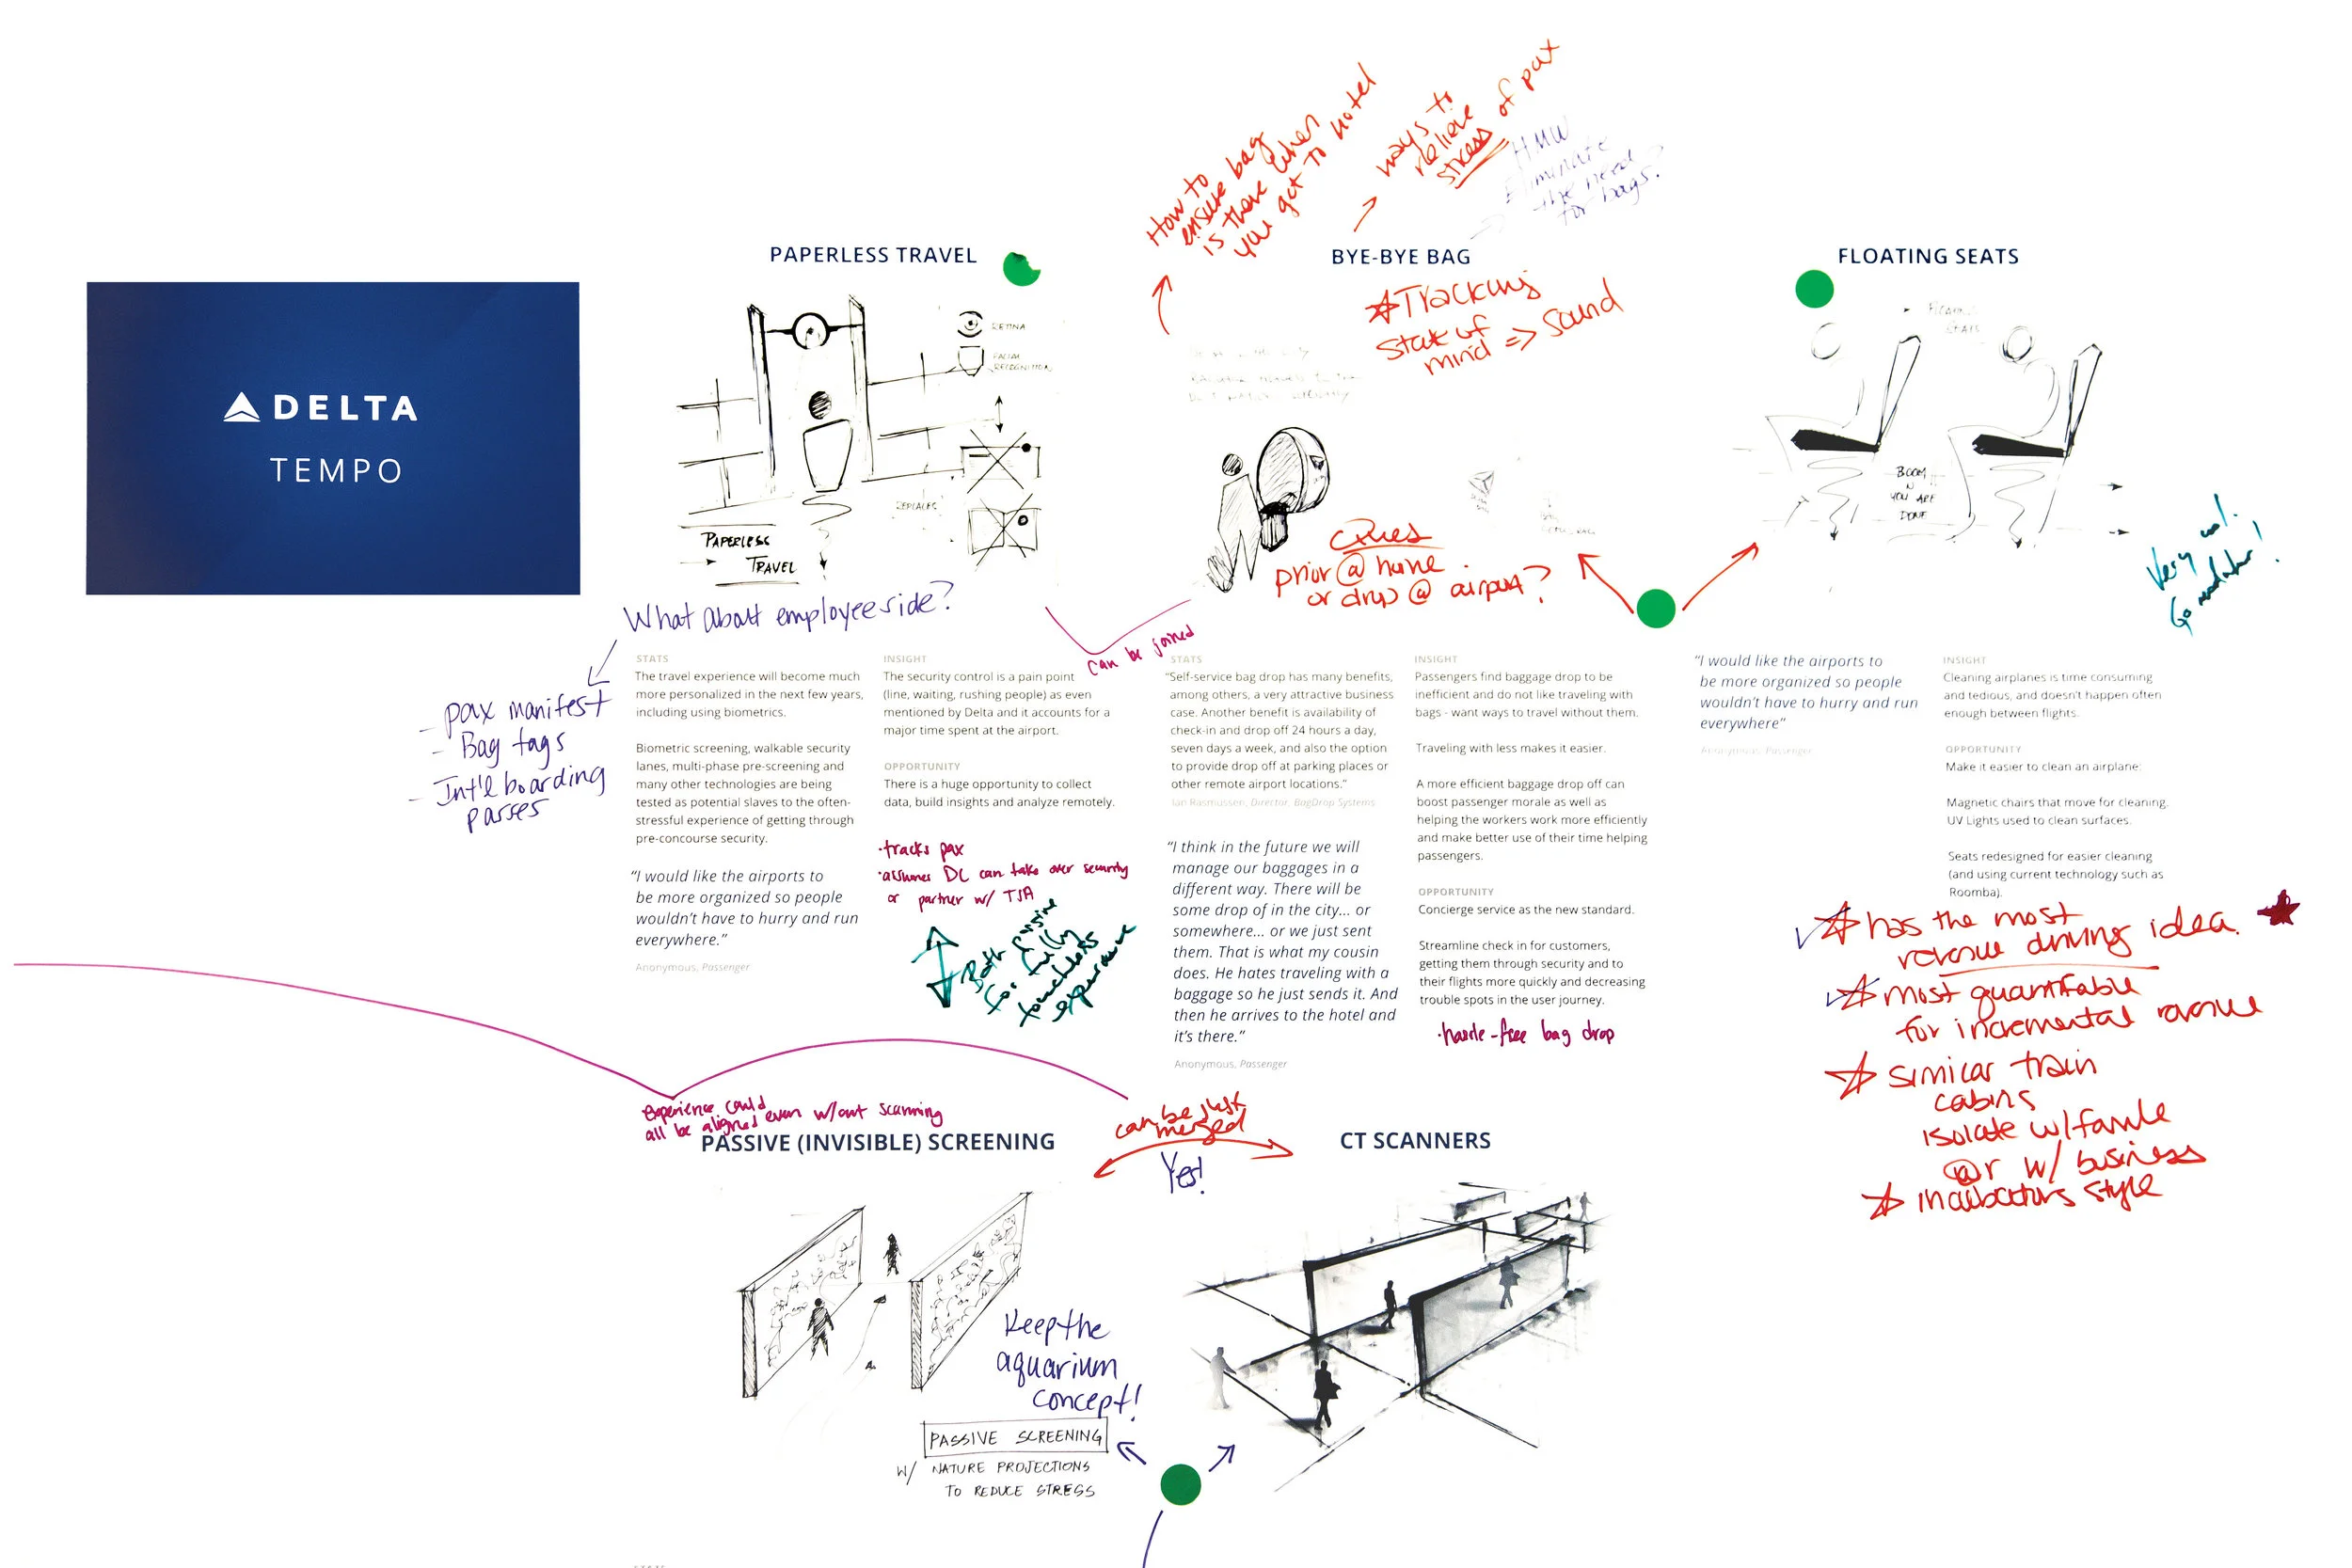 DELTA
TEMPO
PAPERLESS TRAVEL
RETINA
FACIAL
RECOGNITION
REPLACES
PAPERLESS
TRAVEL
What about employee side?
- pax manifest
- Bag tags
- Int'l boarding
passes
STATS
The travel experience will become much
more personalized in the next few years,
including using biometrics.
Biometric screening, walkable security
lanes, multi-phase pre-screening and
many other technologies are being
tested as potential slaves to the often-
stressful experience of getting through
pre-concourse security.
“I would like the airports to
be more organized so people
wouldn’t have to hurry and run
everywhere.”
Anonymous, Passenger
INSIGHT
The security control is a pain point
(line, waiting, rushing people) as even
mentioned by Delta and it accounts for a
major time spent at the airport.
OPPORTUNITY
There is a huge opportunity to collect
data, build insights and analyze remotely.
·tracks pax
·assumes DL can take over security
or partner w/ TSA
Both
touchless
experience
can be joined
How to
ensure bag
is there when
you get to hotel
ways to
relieve
stress of pax
HMW
Eliminate
the need
for bags?
BYE-BYE BAG
Tracking
State of
mind => Sound
prior @ home
or drop @ airport?
STATS
“Self-service bag drop has many benefits,
among others, a very attractive business
case. Another benefit is availability of
check-in and drop off 24 hours a day,
seven days a week, and also the option
to provide drop off at parking places or
other remote airport locations.”
Ian Rasmussen, Director, BagDrop Systems
“I think in the future we will
manage our baggages in a
different way. There will be
some drop of in the city... or
somewhere... or we just sent
them. That is what my cousin
does. He hates traveling with a
baggage so he just sends it. And
then he arrives to the hotel and
it’s there.”
Anonymous, Passenger
INSIGHT
Passengers find baggage drop to be
inefficient and do not like traveling with
bags - want ways to travel without them.
Traveling with less makes it easier.
A more efficient baggage drop off can
boost passenger morale as well as
helping the workers work more efficiently
and make better use of their time helping
passengers.
OPPORTUNITY
Concierge service as the new standard.
Streamline check in for customers,
getting them through security and to
their flights more quickly and decreasing
trouble spots in the user journey.
·hassle-free bag drop
FLOATING SEATS
BOOM
N
YOU ARE
DONE
Very cool.
“I would like the airports to
be more organized so people
wouldn’t have to hurry and run
everywhere”
Anonymous, Passenger
INSIGHT
Cleaning airplanes is time consuming
and tedious, and doesn’t happen often
enough between flights.
OPPORTUNITY
Make it easier to clean an airplane:
Magnetic chairs that move for cleaning.
UV Lights used to clean surfaces.
Seats redesigned for easier cleaning
(and using current technology such as
Roomba).
has the most
revenue driving idea.
most quantifiable
for incremental revenue
similar train
cabins
isolate w/ familie
or w/ business
incubators style
experience could
all be aligned even w/out scanning
PASSIVE (INVISIBLE) SCREENING
can be just
merged
Yes!
CT SCANNERS
Keep the
aquarium
concept!
PASSIVE SCREENING
W/ NATURE PROJECTIONS
TO REDUCE STRESS